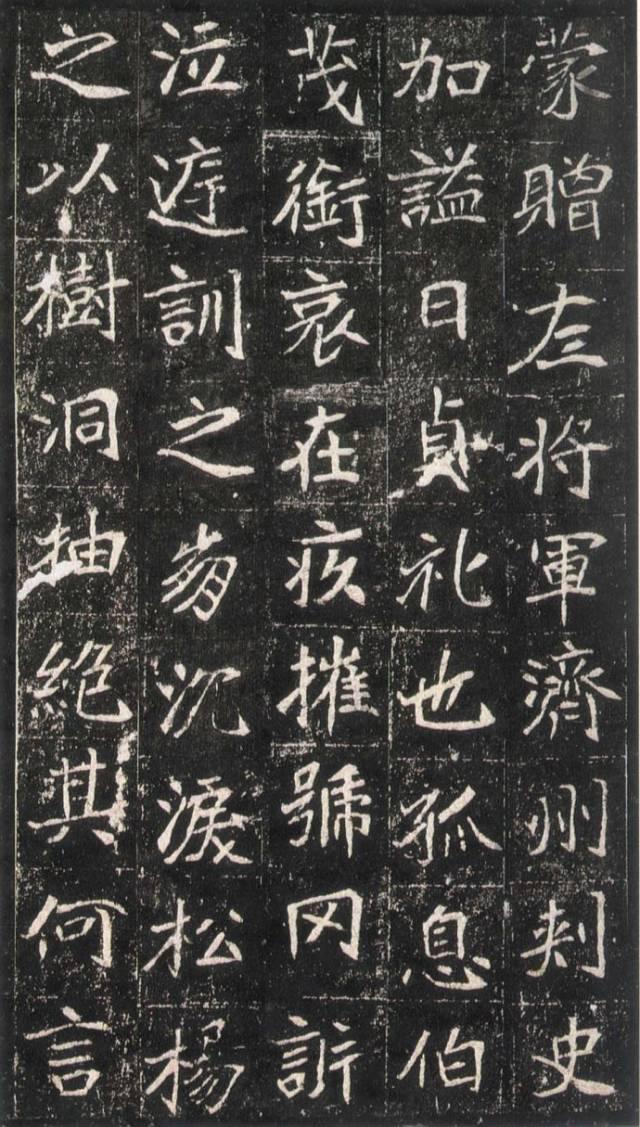 蒙贈左將軍濟州刺史
加謚曰貞礼也孤息伯
茂銜哀在疚摧號罔訴
泣庭訓之崩沉淚松楊
之以樹洞抽絕其何言